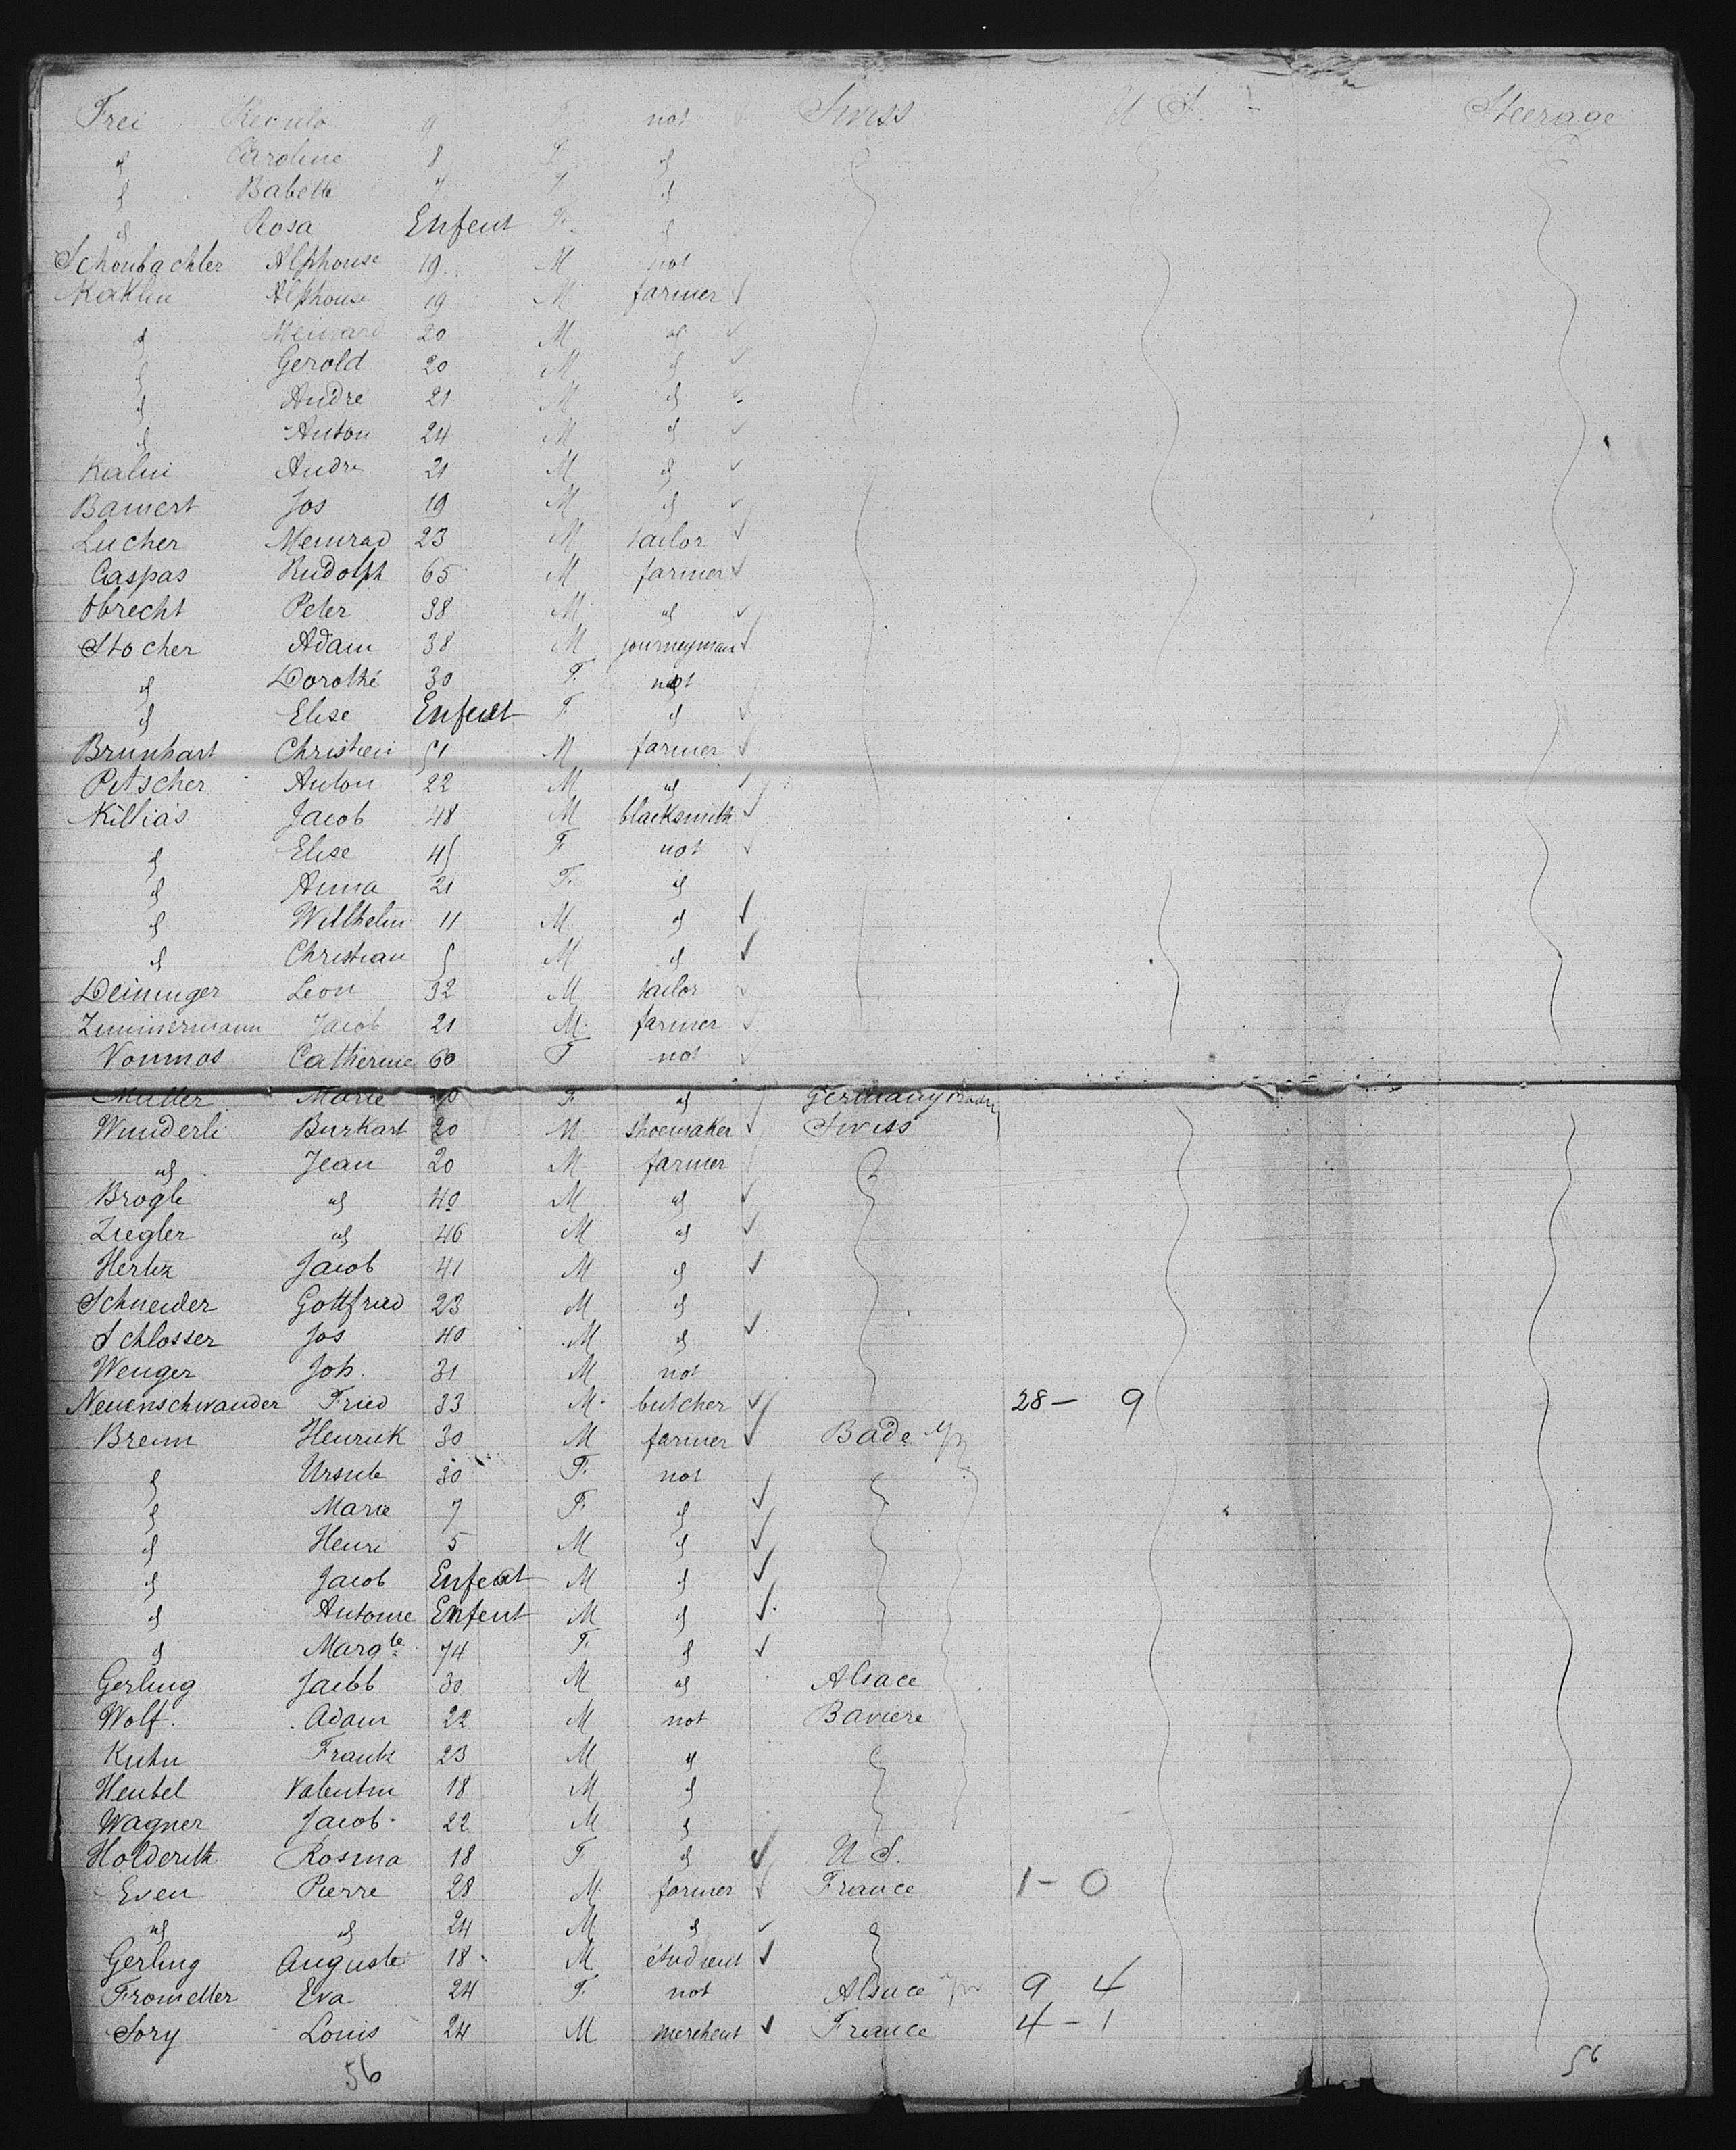 Frei 9 F not Swiss U S. Steerage
" Caroline 8 F "
" Babette 7 F "
" Rosa Enfent F. "
Schonbachler Alphonse 19 M not
Alphonse 19 M farmer
" Meinard 20 M "
" Gerold 20 M "
" Andre 21 M "
" Anton 24 M "
Kalin Andre 21 M "
Bamert Jos 19 M "
Lucher Meinrad 23 M tailor
Caspas Rudolph 65 M farmer
Obrecht Peter 38 M "
Stocher Adam 38 M journeyman
" Dorothé 30 F. not
" Elise Enfent F "
Brunhart Christien 51 M farmer
Pitscher Anton 22 M "
Killias Jacob 48 M blacksmith
" Elise 45 F. not
" Anna 21 F. "
" Willhelm 11 M "
" Christian 5 M "
Deininger Leon 32 M tailor
Zimmermann Jacob 21 M. farmer
Vonmos Catherine 60 F not
Muller Marie F. " Germany
Wunderli Burkart 20 M shoemaker Swiss
" Jean 20 M farmer
Brogle " 40 M "
Ziegler " 46 M "
Jacob 41 M "
Schneider Gottfried 23 M "
Schlosser Jos 40 M "
Wenger Joh. 31 M not
Neuenschwander Fried 33 M. butcher 28 - 9
Brenn Henrick 30 M farmer Bade
" Ursule 30 F. not
" Marie 7 F. "
" Henri 5 M "
" Jacob Enfent M "
" Antoine Enfent M "
" Margte 74 F. "
Gerling Jacob 30 M " Alsace
Wolf. Adam 22 M not Baviere
Kuhn Frantz 23 M "
Heubel Valentin 18 M "
Wagner Jacob 22 M "
Holderith Rosina 18 F " U S.
Even Pierre 28 M farmer France 1 - 0
" " 24 M "
Gerling Auguste 18 M étudient
Fromelter Eva 24 F. not Alsace 9 4
Sory Louis 24 M merchent France 4 - 1
56 56